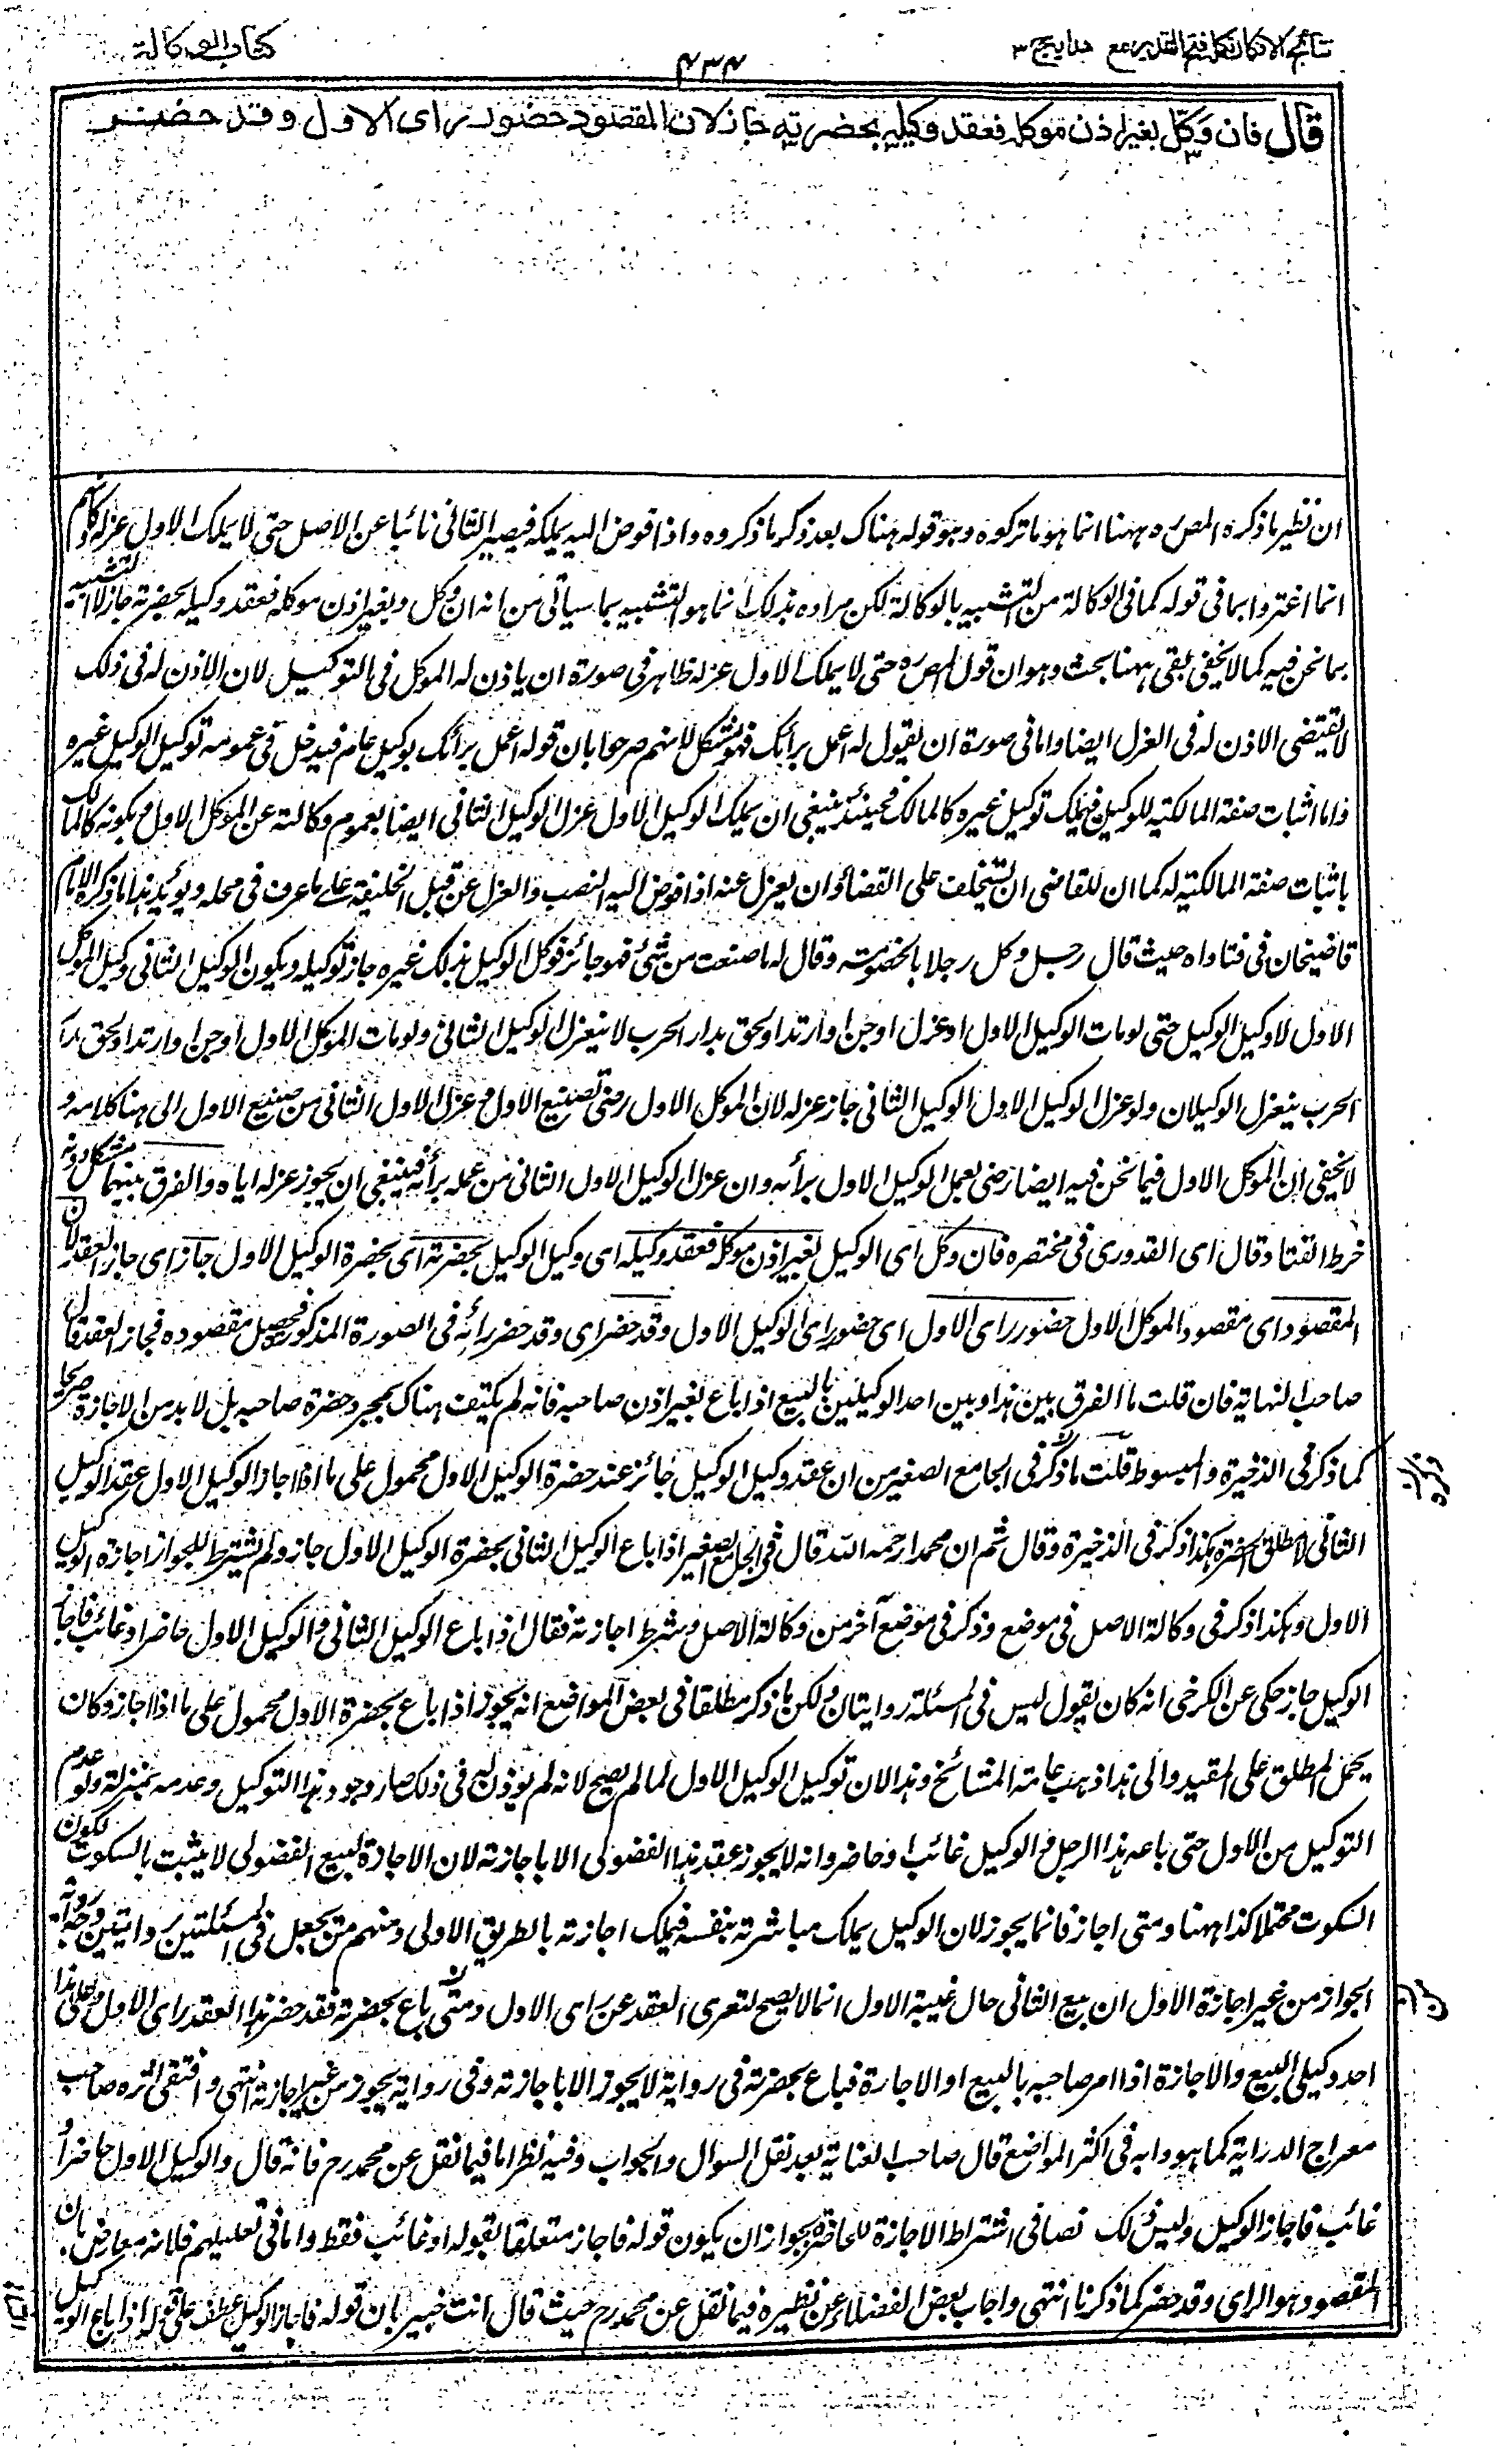 نتائج الافكار تكملة فتح القدير مع هدايه ج ٣
٤٣٤
كتاب الوكالة
قال فان وكل بغير اذن موكله فعقد وكيله بحضرته جاز لان المقصود حضور راى الاول وقد حضر
ان نظير ما ذكره المص ره ههنا انما هو ما تركوه وهو قوله هناك بعد ذكر ما ذكروه واذا فوض اليه يملكه فيصير الثانى نائبا عن الاصل حتى لا يملك الاول عزله فكانهم
انما اغتروا بما فى قوله كما فى الوكالة من التشبيه بالوكالة لكن مراده بذلك انما هو التشبيه بما سياتى من انه ان وكل وبغير اذن موكله فعقد وكيله بحضرته جاز لا التشبيه
بما نحن فيه كما لا يخفى بقى ههنا بحث وهو ان قول المص ره حتى لا يملك الاول عزله ظاهر فى صورة ان ياذن له الموكل فى التوكيل لان الاذن له فى ذلك
لا يقتضى الاذن له فى العزل ايضا واما فى صورة ان يقول له اعمل برائك فهو مشكل لانهم صرحوا بان قوله اعمل برائك توكيل عام فيدخل فى عمومه توكيل الوكيل غيره
واما اثبات صفة المالكية للوكيل فيملك توكيل غيره كالمالك فحينئذ ينبغى ان يملك الوكيل الاول عزل الوكيل الثانى ايضا بعموم وكالته عن الموكل الاول او بكونه كالمالك
باثبات صفة المالكية له كما ان للقاضى ان يستخلف على القضاء وان يعزل عنه اذا فوض اليه النصب والعزل عن قبل الخليفة على ما عرف فى محله ويؤيد هذا ما ذكره الامام
قاضيخان فى فتاواه حيث قال رجل وكل رجلا بالخصومة وقال له ما صنعت من شئ فهو جائز فوكل الوكيل بذلك غيره جاز توكيله ويكون الوكيل الثانى وكيل الموكل
الاول لا وكيل الوكيل حتى لو مات الوكيل الاول او عزل او جن او ارتد او لحق بدار الحرب لا ينعزل الوكيل الثانى ولو مات الموكل الاول او جن او ارتد او لحق بدار
الحرب ينعزل الوكيلان ولو عزل الوكيل الاول الوكيل الثانى جاز عزله لان الموكل الاول رضى بصنيع الاول وعزل الاول الثانى من صنيع الاول الى هنا كلامه و
لا يخفى ان الموكل الاول فيما نحن فيه ايضا رضى بعمل الوكيل الاول برأيه وان عزل الوكيل الاول الثانى من عمله برأيه فينبغى ان يجوز عزله اياه والفرق بينهما مشكل دونه
خرط القتاد قال اى القدورى فى مختصره فان وكل اى الوكيل بغير اذن موكله فعقد وكيله اى وكيل الوكيل بحضرته اى بحضرة الوكيل الاول جاز اى جاز العقد لان
المقصود اى مقصود الموكل الاول حضور راى الاول اى حضور راى الوكيل الاول وقد حضر اى وقد حضر رائه فى الصورة المذكورة فحصل مقصوده فجاز العقد قال
صاحب النهاية فان قلت ما الفرق بين هذا وبين احد الوكيلين بالبيع اذا باع بغير اذن صاحبه فانه لم يكتف هناك بمجرد حضرة صاحبه بل لا بد من الاجازة صريحا
كما ذكر فى الذخيرة والمبسوط قلت ما ذكر فى الجامع الصغير من ان عقد وكيل الوكيل جائز عند حضرة الوكيل الاول محمول على ما اذا اجاز الوكيل الاول عقد الوكيل
الثانى لا مطلق الحضرة هكذا ذكر فى الذخيرة وقال ثم ان محمدا رحمه الله قال فى الجامع الصغير اذا باع الوكيل الثانى بحضرة الوكيل الاول جاز ولم يشترط للجواز اجازة الوكيل
الاول وهكذا ذكر فى وكالة الاصل فى موضع وذكر فى موضع آخر من وكالة الاصل وشرط اجازته فقال اذا باع الوكيل الثانى والوكيل الاول حاضر او غائب فاجاز
الوكيل جاز حكى عن الكرخى انه كان يقول ليس فى المسئلة روايتان ولكن ما ذكر مطلقا فى بعض المواضع انه يجوز اذا باع بحضرة الاول محمول على ما اذا اجاز وكان
يحمل المطلق على المقيد والى هذا ذهب عامة المشائخ وهذا لان توكيل الوكيل الاول لما لم يصح لانه لم يؤذن له فى ذلك صار وجود هذا التوكيل وعدمه بمنزلة ولو عدم
التوكيل من الاول حتى باعه هذا الرجل والوكيل غائب او حاضر وانه لا يجوز عقد هذا الفضولى الا باجازته لان الاجازة لبيع الفضولى لا يثبت بالسكوت لكون
السكوت محتملا كذا ههنا ومتى اجاز فانما يجوز لان الوكيل يملك مباشرته بنفسه فيملك اجازته بالطريق الاولى ومنهم من يجعل فى المسئلتين روايتين وجه رواية
الجواز من غير اجازة الاول ان بيع الثانى حال غيبة الاول انما لا يصح لتعرى العقد عن راى الاول ومتى باع بحضرته فقد حضر هذا العقد راى الاول وعلى هذا
احد وكيلى البيع والاجازة اذا امر صاحبه بالبيع او الاجارة فباع بحضرته فى رواية لا يجوز الا باجازته وفى رواية يجوز من غير اجازة انتهى واقتفى اثره صاحب
معراج الدراية كما هو دابه فى اكثر المواضع قال صاحب العناية بعد نقل السوال والجواب وفيه نظر اما فيما نقل عن محمد رح فانه قال والوكيل الاول حاضر أو
غائب فاجاز الوكيل وليس ذلك نصا فى اشتراط الاجازة للحاضر لجواز ان يكون قوله فاجاز متعلقا بقوله او غائب فقط واما فى تعليلهم فلانه معارض بان
المقصود هو الراى وقد حضر كما ذكرنا انتهى واجاب بعض الفضلاء عن نظيره فيما نقل عن محمد رح حيث قال انت خبير بان قوله فاجاز الوكيل عطف على قوله اذا باع الوكيل